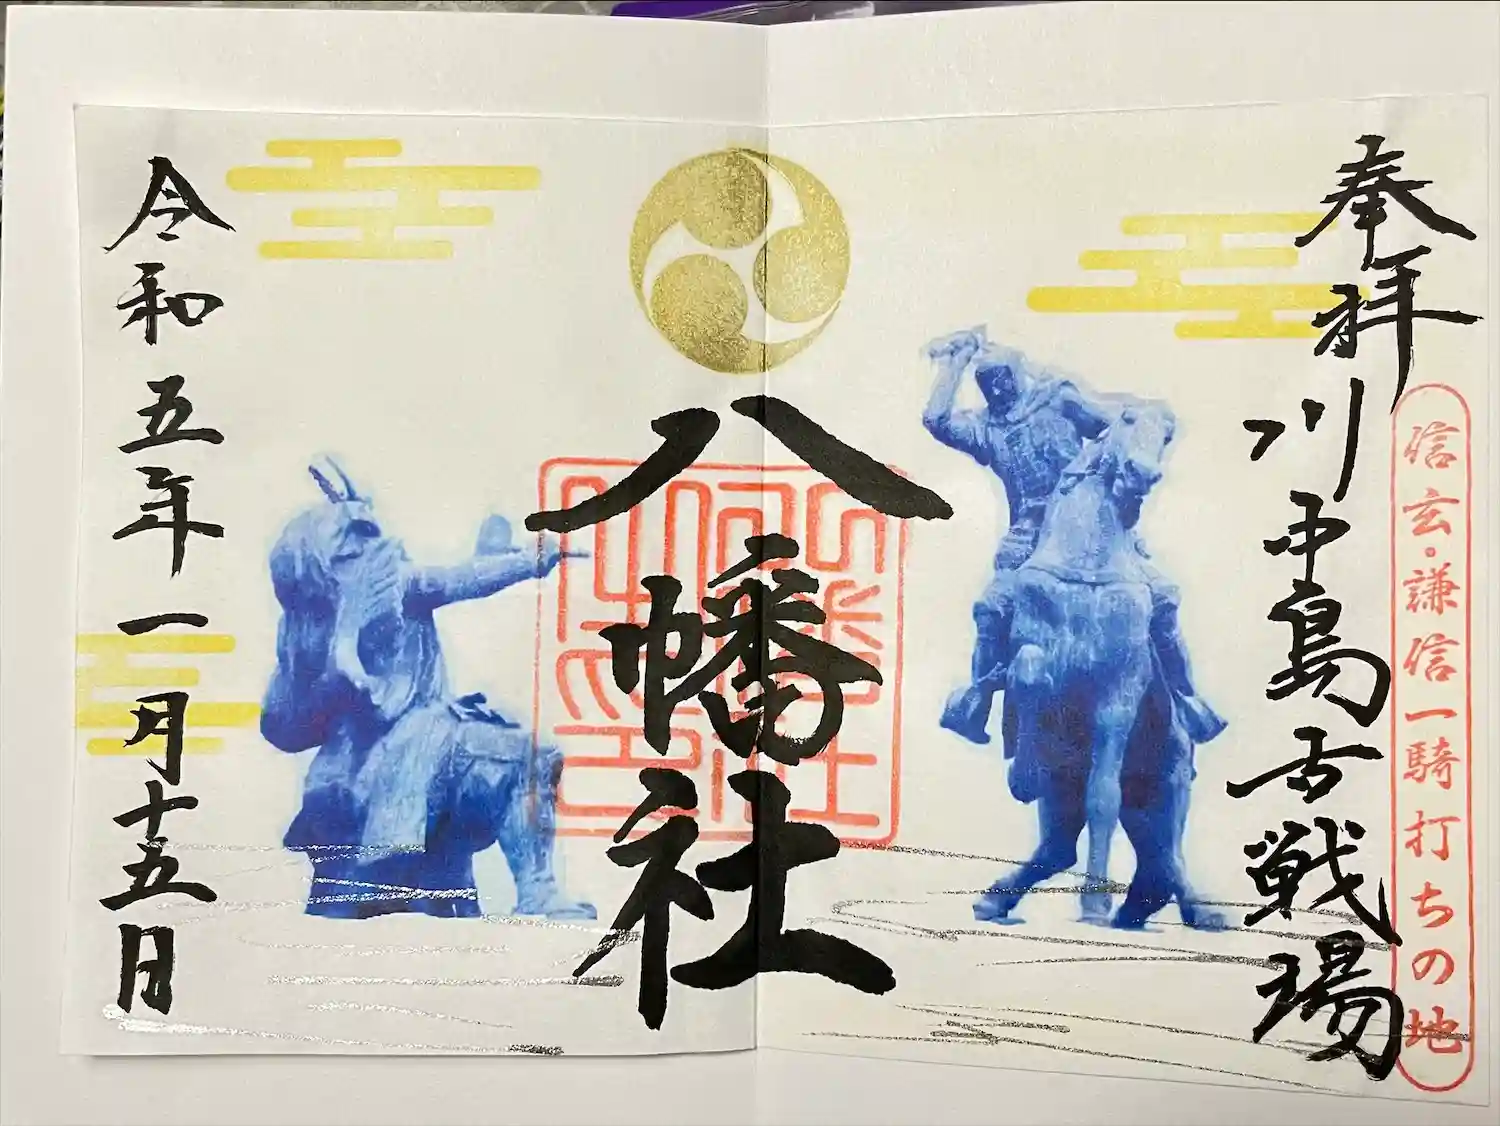 奉拝
川中島古戦場
信玄・謙信一騎打ちの地
八幡社
令和五年一月十五日